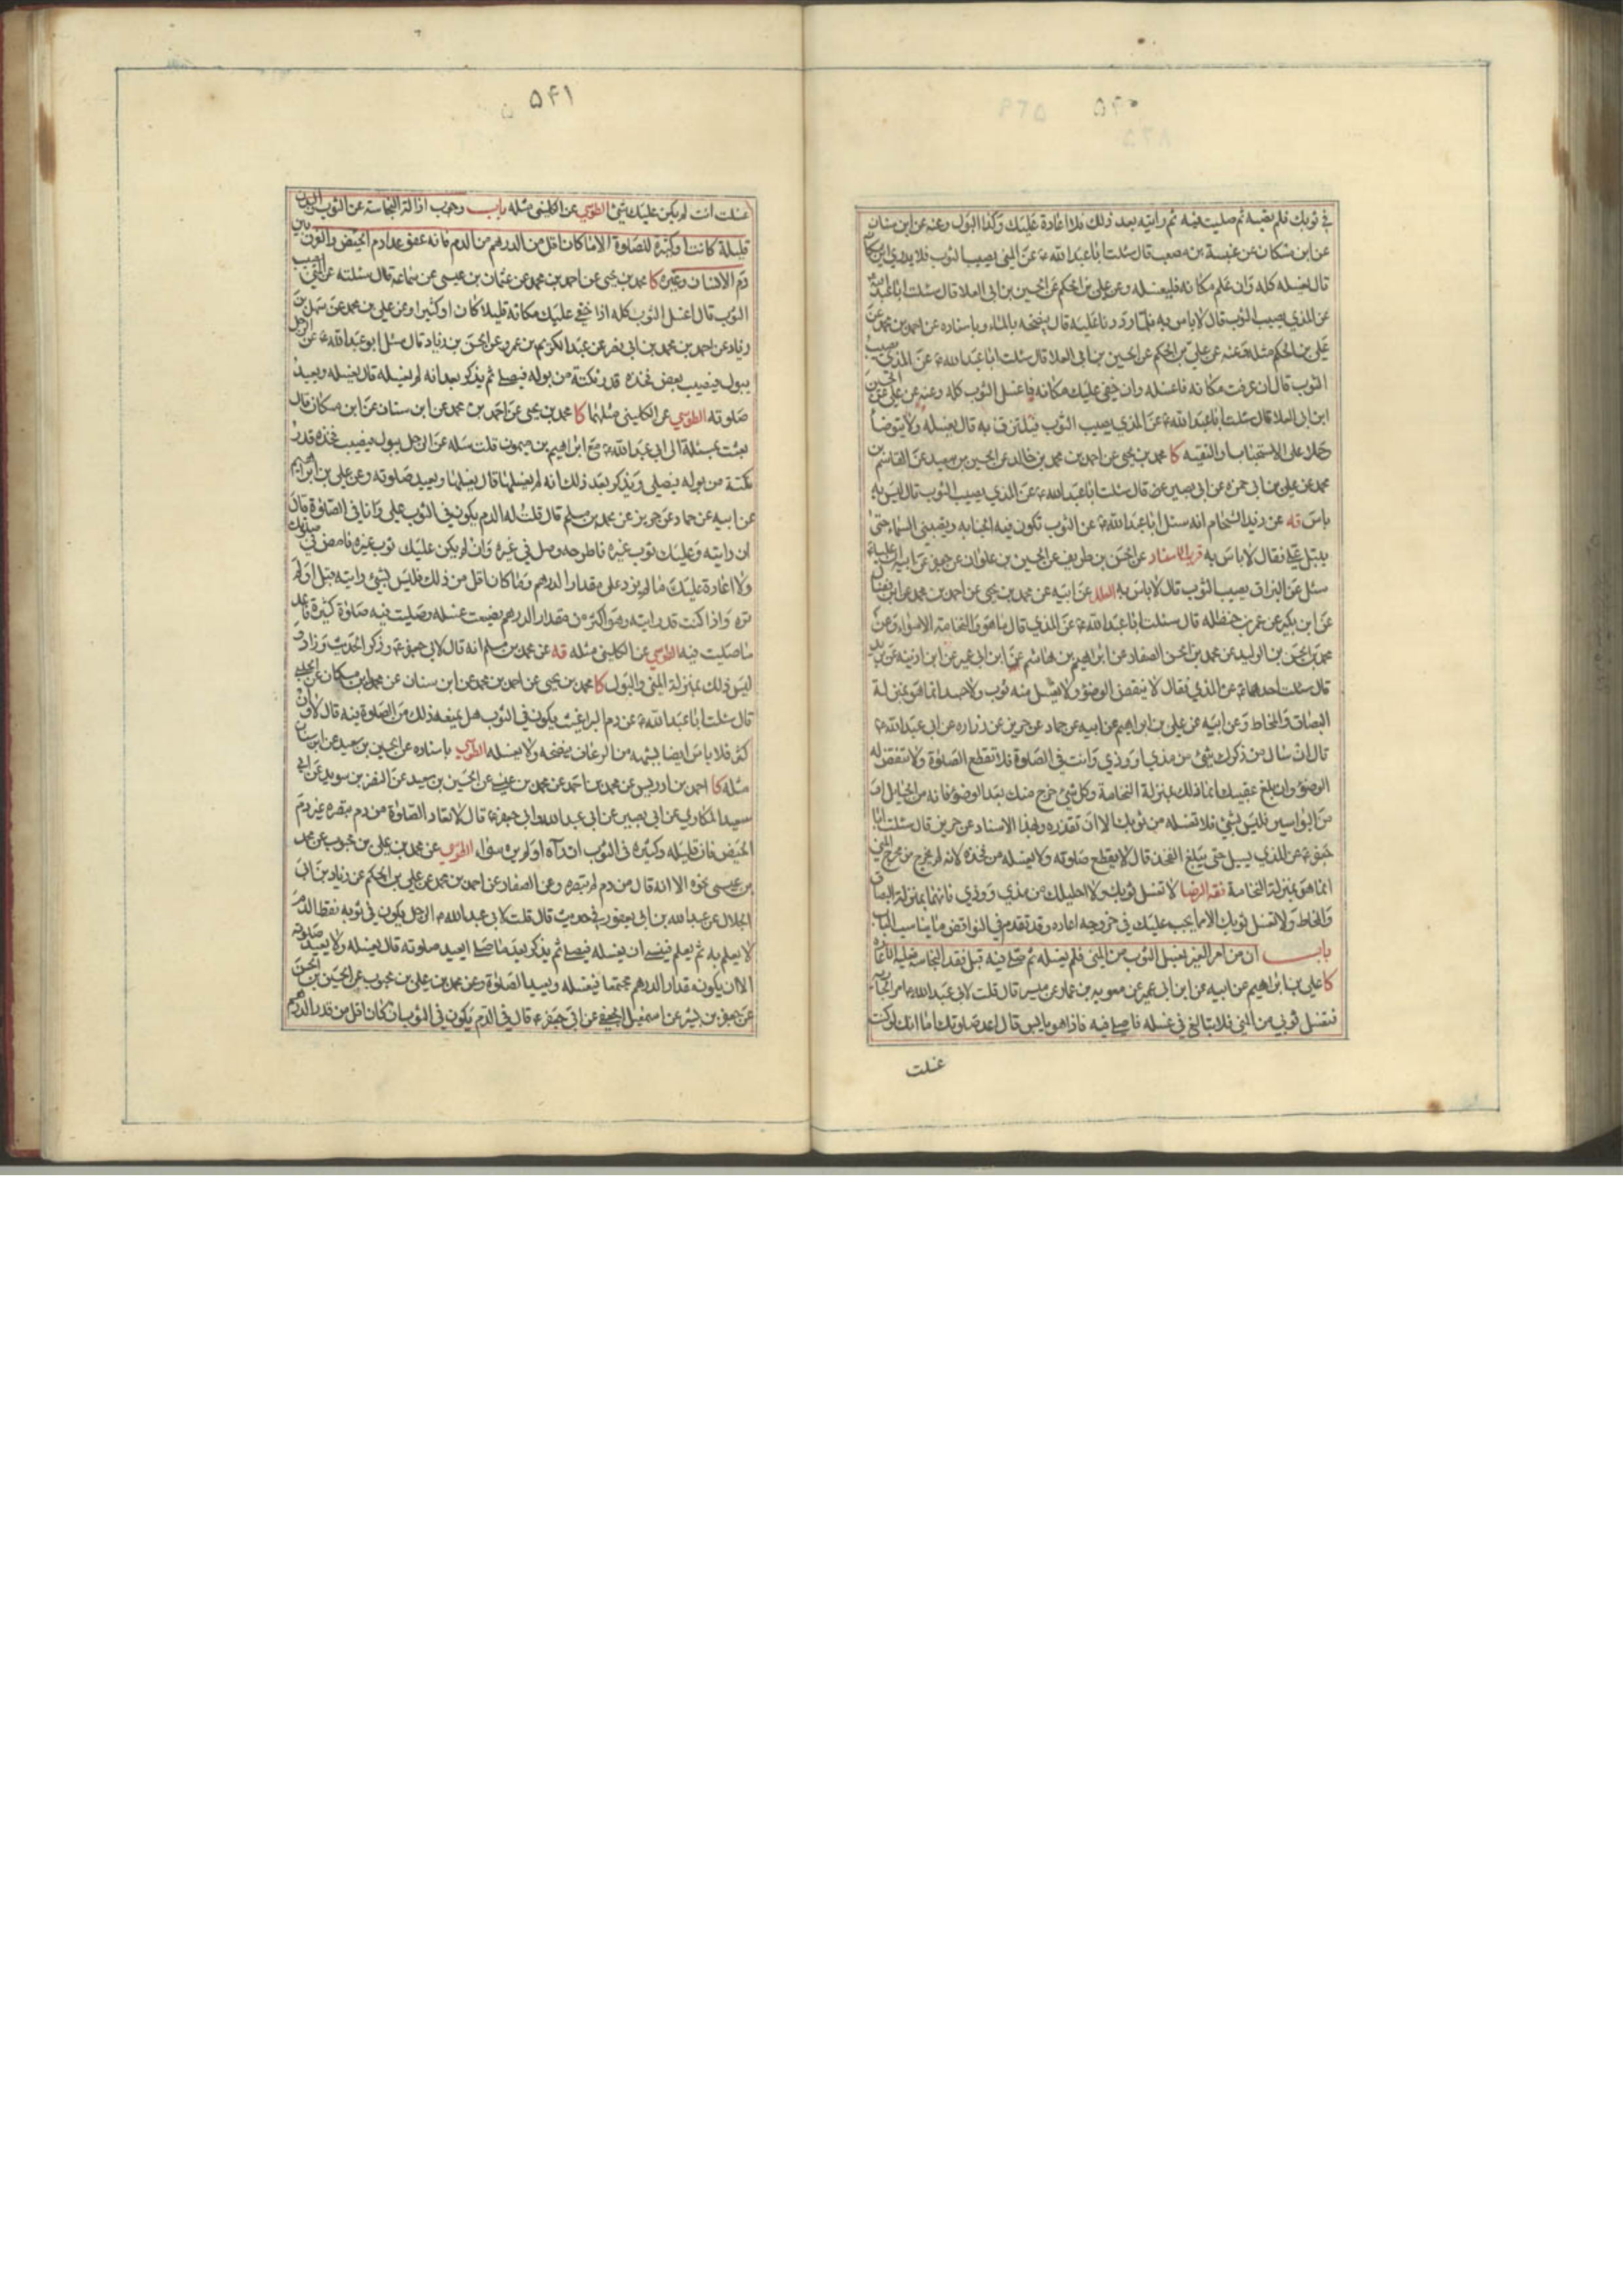 ۵۴۰
في ثوبك فلم يصبه ثم صليت فيه ثم رايته بعد ذلك فلا اعادة عليك وكذا البول وعنه عن ابن سنان
عن ابن مسكان عن عنبسة بن مصعب قال سئلت ابا عبد الله ع عن المني يصيب الثوب فلا يدري اين مكانه
قال يغسله كله وان علم مكانه فليغسله وعن علي بن الحكم عن الحسين بن ابي العلا قال سئلت ابا عبد الله
عن المذي يصيب الثوب قال لا باس به فلما رددنا عليه قال ينضحه بالماء وباسناده عن احمد بن محمد عن
علي بن الحكم مثله وعنه عن علي بن الحكم عن الحسين بن ابي العلا قال سئلت ابا عبد الله ع عن المذي يصيب
الثوب قال ان عرفت مكانه فاغسله وان خفي عليك مكانه فاغسل الثوب كله وعنه عن علي عن الحسين
ابن ابي العلا قال سئلت ابا عبد الله ع عن المذي يصيب الثوب فيلتزق به قال يغسله ولا يتوضأ
وحملا على الاستحباب او التقية كا محمد بن يحيى عن احمد بن محمد بن خالد عن الحسين بن سعيد عن القاسم بن
محمد عن علي بن ابي حمزه عن ابي بصير قال سئلت ابا عبد الله ع عن المذي يصيب الثوب قال ليس به
باس قه عن زيد الشحام انه سئل ابا عبد الله ع عن الثوب تكون فيه الجنابه ويصيبني السماء حتى
يبتل علي فقال لا باس به قرب الاسناد عن الحسن بن طريف عن الحسين بن علوان عن جعفر عن ابيه
سئل عن البزاق يصيب الثوب قال لا باس به العلل عن ابيه عن محمد بن يحيى عن احمد بن محمد عن ابن فضال
عن ابن بكير عن عمر بن حنظله قال سئلت ابا عبد الله ع عن المذي قال ما هو والنخامة الا سواء وعن
محمد بن الحسن بن الوليد عن محمد بن الحسن الصفار عن ابراهيم بن هاشم عن ابن ابي عمير عن ابن اذينه عن بريد
قال سئلت احدهما ع عن المذي فقال لا ينقض الوضوء ولا يغسل منه ثوب ولا جسد انما هو بمنزلة
البصاق والمخاط وعن ابيه عن علي بن ابراهيم عن ابيه عن حماد عن حريز عن زراره عن ابي عبد الله ع
قال ان سال من ذكرك شيئ من مذي او وذي وانت في الصلوة فلا تقطع الصلوة ولا تنقض له
الوضوء وان بلغ عقبيك انما ذلك بمنزلة النخامة وكل شيئ خرج منك بعد الوضوء فانه من الحبايل او
من البواسير فليس بشيئ فلا تغسله من ثوبك الا ان تقذره وبهذا الاسناد عن حريز قال سئلت ابا
جعفر ع عن المذي يسيل حتى يبلغ الفخذ قال لا يقطع صلوته ولا يغسله من فخذه لانه لم يخرج من مخرج المني
انما هو بمنزلة النخامة فقه الرضا لا تغسل ثوبك ولا احليلك من مذي ووذي فانهما بمنزلة البصاق
والمخاط ولا تغسل ثوبك الا مما يجب عليك في خروجه اعاده وقد تقدم في النواقض ما يناسب الباب
باب ان من امر الغير بغسل الثوب من المني فلم يغسله ثم صلى فيه قبل تفقد النجاسة فعليه الاعادة
كا علي بن ابراهيم عن ابيه عن ابن ابي عمير عن معويه بن عمار عن ميسر قال قلت لابي عبد الله ع امر الجارية
فتغسل ثوبي من المني فلا تبالغ في غسله فاصلي فيه فاذا هو يابس قال اعد صلوتك اما انك لو كنت
غسلت
۵۴۱
غسلت انت لم يكن عليك شيئ الطوسي عن الكليني مثله باب وجوب ازالة النجاسة عن الثوب والبدن
قليلة كانت او كثيرة للصلوة الا ما كان اقل من الدرهم من الدم فانه عفو عدا دم الحيض
دم الانسان وغيره كا محمد بن يحيى عن احمد بن محمد عن عثمان بن عيسى عن سماعه قال سئلته عن المني يصيب
الثوب قال اغسل الثوب كله اذا خفي عليك مكانه قليلا كان او كثيرا وعن علي بن محمد عن سهل بن
زياد عن احمد بن محمد بن ابي نصر عن عبد الكريم بن عمرو عن الحسن بن زياد قال سئل ابو عبد الله ع عن الرجل
يبول فيصيب بعض فخذه قدر نكتة من بوله فيصلي ثم يذكر بعد انه لم يغسله قال يغسله ويعيد
صلوته الطوسي عن الكليني مثلهما كا محمد بن يحيى عن احمد بن محمد عن ابن سنان عن ابن مسكان قال
بعثت بمسئلة الى ابي عبد الله ع مع ابراهيم بن ميمون قلت سله عن الرجل يبول فيصيب فخذه قدر
نكتة من بوله فيصلي ويذكر بعد ذلك انه لم يغسلها قال يغسلها ويعيد صلوته وعن علي بن ابراهيم
عن ابيه عن حماد عن حريز عن محمد بن مسلم قال قلت له الدم يكون في الثوب علي وانا في الصلوة قال
ان رايته وعليك ثوب غيره فاطرحه وصل في غيره وان لم يكن عليك ثوب غيره فامض في صلوتك
ولا اعادة عليك ما لم يزد على مقدار الدرهم وما كان اقل من ذلك فليس بشيئ رايته قبل او لم
تره واذا كنت قد رايته وهو اكثر من مقدار الدرهم فضيعت غسله وصليت فيه صلوة كثيرة فاعد
ما صليت فيه الطوسي عن الكليني مثله قه عن محمد بن مسلم انه قال لابي جعفر ع وذكر الحديث وزاد
ليس ذلك بمنزلة المني والبول كا محمد بن يحيى عن احمد بن محمد عن ابن سنان عن ابن مسكان عن الحلبي
قال سئلت ابا عبد الله ع عن دم البراغيث يكون في الثوب هل يمنعه ذلك من الصلوة فيه قال لا وان
كثر فلا باس ايضا بشبهه من الرعاف ينضحه ولا يغسله الطوسي باسناده عن الحسين بن سعيد عن ابن سنان
مثله كا احمد بن ادريس عن محمد بن احمد عن محمد بن عيسى عن الحسين بن سعيد عن النضر بن سويد عن ابي
سعيد المكاري عن ابي بصير عن ابي عبد الله او ابي جعفر ع قال لا تعاد الصلوة من دم تبصره غير دم
الحيض فان قليله وكثيره في الثوب ان رآه او لم يره سواء الطوسي عن محمد بن علي بن محبوب عن محمد
بن عيسى نحوه الا انه قال من دم لم تبصره وعن الصفار عن احمد بن محمد عن علي بن الحكم عن زياد بن ابي
الحلال عن عبد الله بن ابي يعفور في حديث قال قلت لابي عبد الله ع الرجل يكون في ثوبه نقط الدم
لا يعلم به ثم يعلم فينسى ان يغسله فيصلي ثم يذكر بعد ما صلى ايعيد صلوته قال يغسله ولا يعيد صلوته
الا ان يكون مقدار الدرهم مجتمعا فيغسله ويعيد الصلوة وعن محمد بن علي بن محبوب عن الحسين بن الحسن
عن جعفر بن بشير عن اسمعيل الجعفي عن ابي جعفر ع قال في الدم يكون في الثوب ان كان اقل من قدر الدرهم